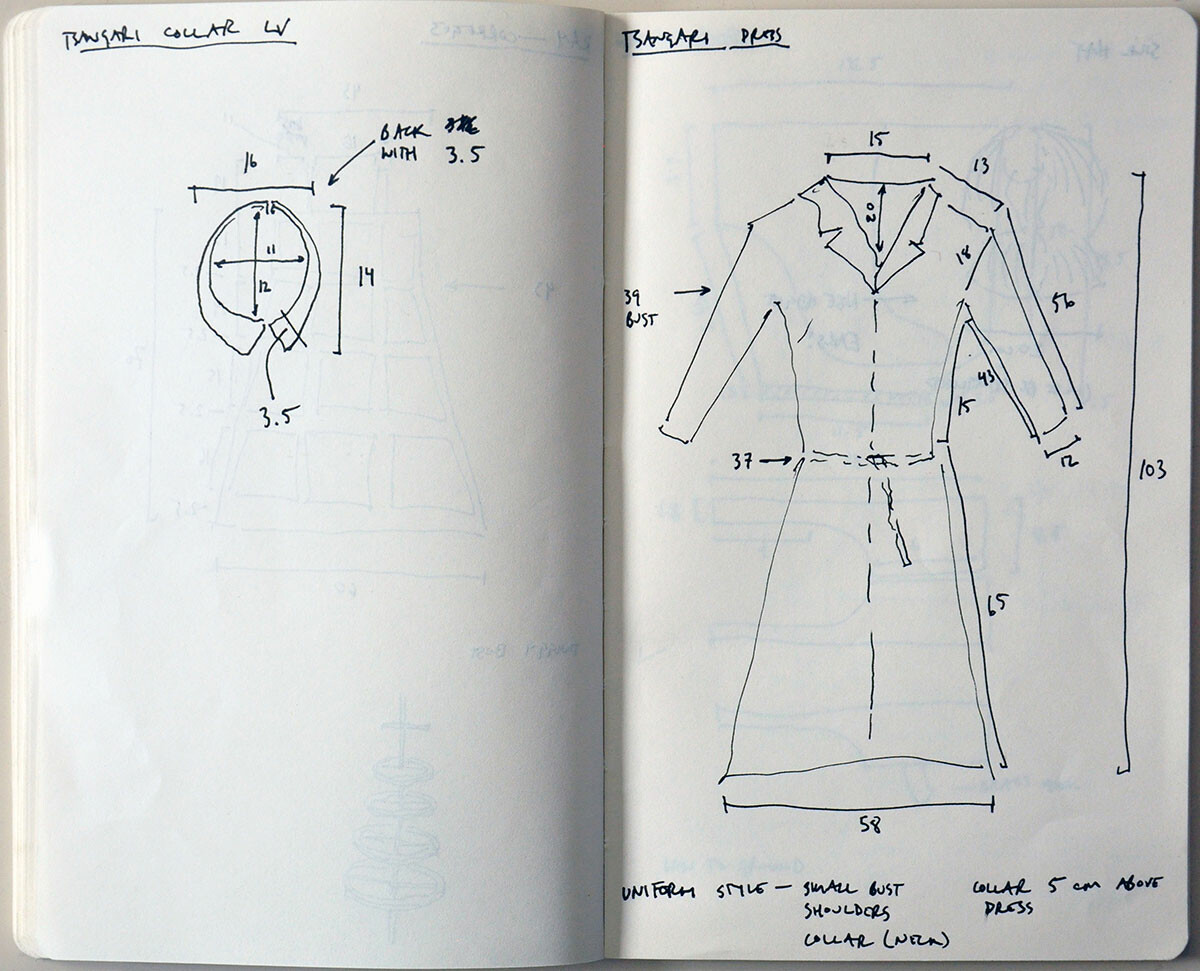 TSANGARI COLLAR LV
BACK
WITH 3.5
16
11
12
14
3.5
TSANGARI DRESS
15
13
18
56
39
BUST
43
15
12
37
103
65
58
UNIFORM STYLE — SMALL BUST
SHOULDERS
COLLAR (NECK)
COLLAR 5 cm ABOVE
DRESS